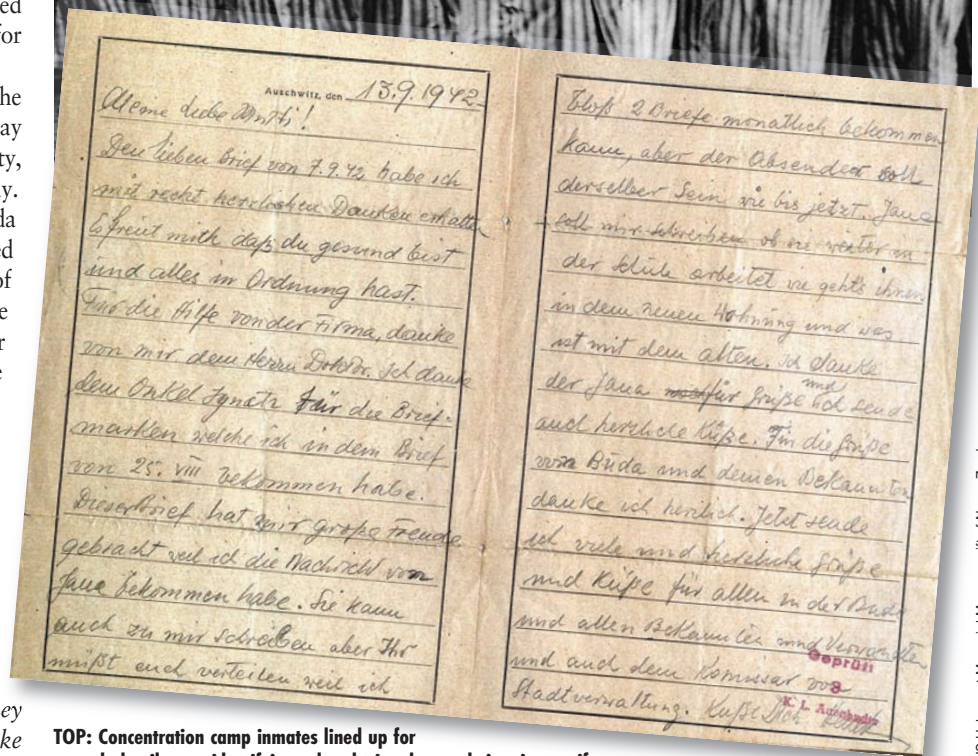 ed
for
he
ay
ty,
y.
da
ed
of
e
r
e
ey
ke
Auschwitz, den 13.9.1942
Meine liebe Mutti!
Den lieben Brief von 7.9.42 habe ich
mit recht herzlichen Danken erhalten
Es freut mich daß du gesund bist
und alles in Ordnung hast.
Für die Hilfe von der Firma, danke
von mir dem Herrn Doktor. Ich danke
dem Onkel Ignatz für die Brief-
marken welche ich in dem Brief
von 25. VIII bekommen habe.
Dieser Brief hat mir große Freude
gebracht weil ich die Nachricht von
Jana bekommen habe. Sie kann
auch zu mir schreiben aber Ihr
müßt euch verteilen weil ich
bloß 2 Briefe monatlich bekommen
kann, aber der Absender soll
derselber sein wie bis jetzt. Jana
soll mir schreiben ob sie weiter in
der Schule arbeitet wie gehts ihnen
in dem neuen Wohnung und was
ist mit dem alten. Ich danke
der Jana für Grüße und ich sende
auch herzliche Küße. Für die Grüße
von Buda und deinen Bekannten
danke ich herzlich. Jetzt sende
ich viele und herzliche Grüße
und Küße für allen in der Buda
und allen Bekannten und Verwandten
und auch dem Komissar von
Stadtverwaltung. Küße Dich
Geprüft
8
K. L. Auschwitz
TOP: Concentration camp inmates lined up for